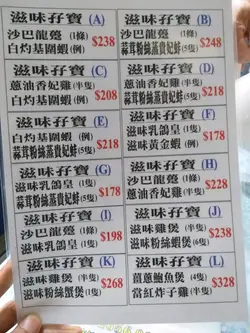 滋味孖寶 (A)
沙巴龍躉 (1條) $238
白灼基圍蝦 (例)
滋味孖寶 (B)
沙巴龍躉 (1條) $248
蒜茸粉絲蒸貴妃蚌 (5隻)
滋味孖寶 (C)
蔥油香妃雞 (半隻) $208
白灼基圍蝦 (例)
滋味孖寶 (D)
蔥油香妃雞 (半隻) $218
蒜茸粉絲蒸貴妃蚌 (5隻)
滋味孖寶 (E)
白灼基圍蝦 (例) $218
蒜茸粉絲蒸貴妃蚌 (5隻)
滋味孖寶 (F)
滋味乳鴿皇 (1隻) $178
滋味黃金蝦 (例)
滋味孖寶 (G)
滋味乳鴿皇 (1隻) $178
蒜茸粉絲蒸貴妃蚌 (5隻)
滋味孖寶 (H)
沙巴龍躉 (1條) $228
蔥油香妃雞 (半隻)
滋味孖寶 (I)
沙巴龍躉 (1條) $198
滋味乳鴿皇 (1隻)
滋味孖寶 (J)
滋味雞煲 (半隻) $238
滋味粉絲蝦煲 (6隻)
滋味孖寶 (K)
滋味雞煲 (半隻) $268
滋味粉絲蟹煲 (1隻)
滋味孖寶 (L)
薑蔥鮑魚煲 (8隻) $328
當紅炸子雞 (1隻)